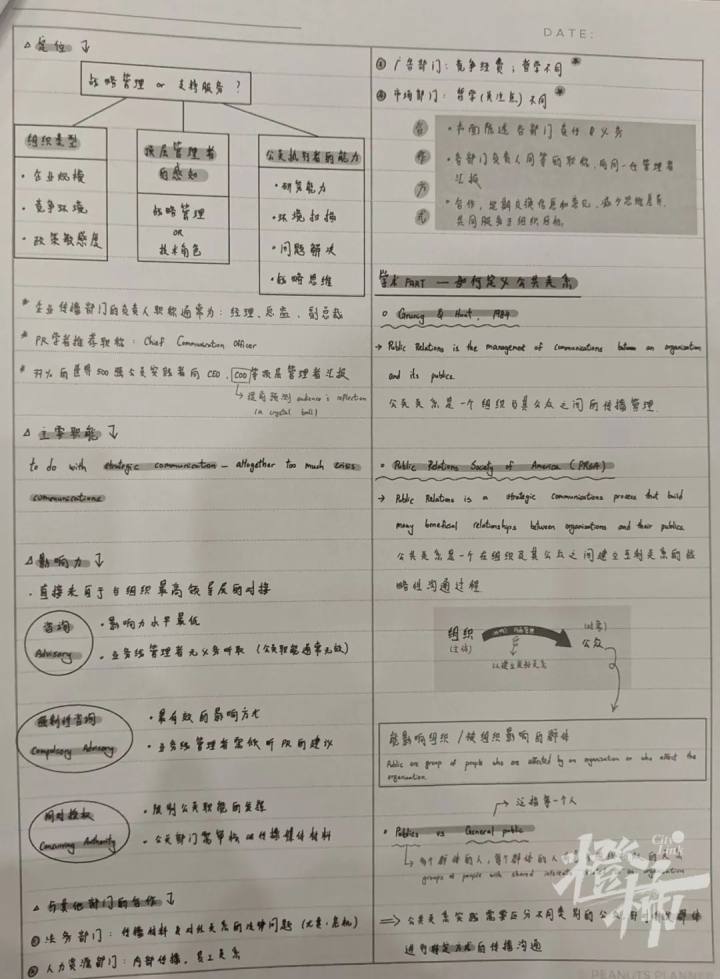 DATE:
△ 定位 ↓
战略管理 or 支持服务?
组织类型
· 企业规模
· 竞争环境
· 政策敏感度
顶层管理者
的感知
战略管理
OR
技术角色
公关执行者的能力
· 研究能力
· 环境扫描
· 问题解决
· 战略思维
* 企业传播部门的负责人职称通常为: 经理、总监、副总裁
* PR学者推荐职称: Chief Communication Officer
的世界500强公关实践者向 CEO、COO等顶层管理者汇报
→ 提前预测 audience's reflection
(a crystal ball)
△ 主要职能 ↓
to do with strategic communication — altogether too much crisis
communications
△ 影响力 ↓
· 直接来自于与组织最高领导层的对接
咨询
Advisory
· 影响力水平最低
· 业务线管理者无义务听取 (公关职能通常无效)
强制性咨询
Compulsory Advisory
· 最有效的影响方式
· 业务线管理者需低听取的建议
同时授权
Concurring Authority
· 限制公关职能的发挥
· 公关部门需审核 传播媒体材料
△ 与其他部门的合作 ↓
① 法务部门: 传播材料 对外关系的法律问题
② 人力资源部门: 内部传播, 员工关系
③ 广告部门: 竞争经费; 哲学不同 *
④ 市场部门: 哲学(关注点)不同 *
合
作
方
式
· 书面陈述各部门责任与义务
· 各部门负责人同等的职称, 向同一位管理者
汇报
· 合作, 定期交换信息和意见, 减少思维差异,
共同服务于组织目标.
学术PART — 如何定义公共关系
○ Grunig & Hunt, 1984
→ Public Relations is the management of communications between an organization
and its publics.
公共关系是一个组织与其公众之间的传播管理.
○ Public Relations Society of America (PRSA)
→ Public Relations is a strategic communications process that build
many beneficial relationships between organizations and their publics
公共关系是一个在组织及其公众之间建立互利关系的战
略性沟通过程
组织
(主体)
公众
以建立良好关系
能影响组织 / 被组织影响的群体
Public are group of people who are affected by an organization or who affect the
organization.
→ 泛指每一个人
· Publics vs General public
groups of people with shared interests organization
⇒ 公共关系实践需要区分不同类别的公众
进行特定方式的传播沟通
City Link
橙柿
PEANUTS PLANNER